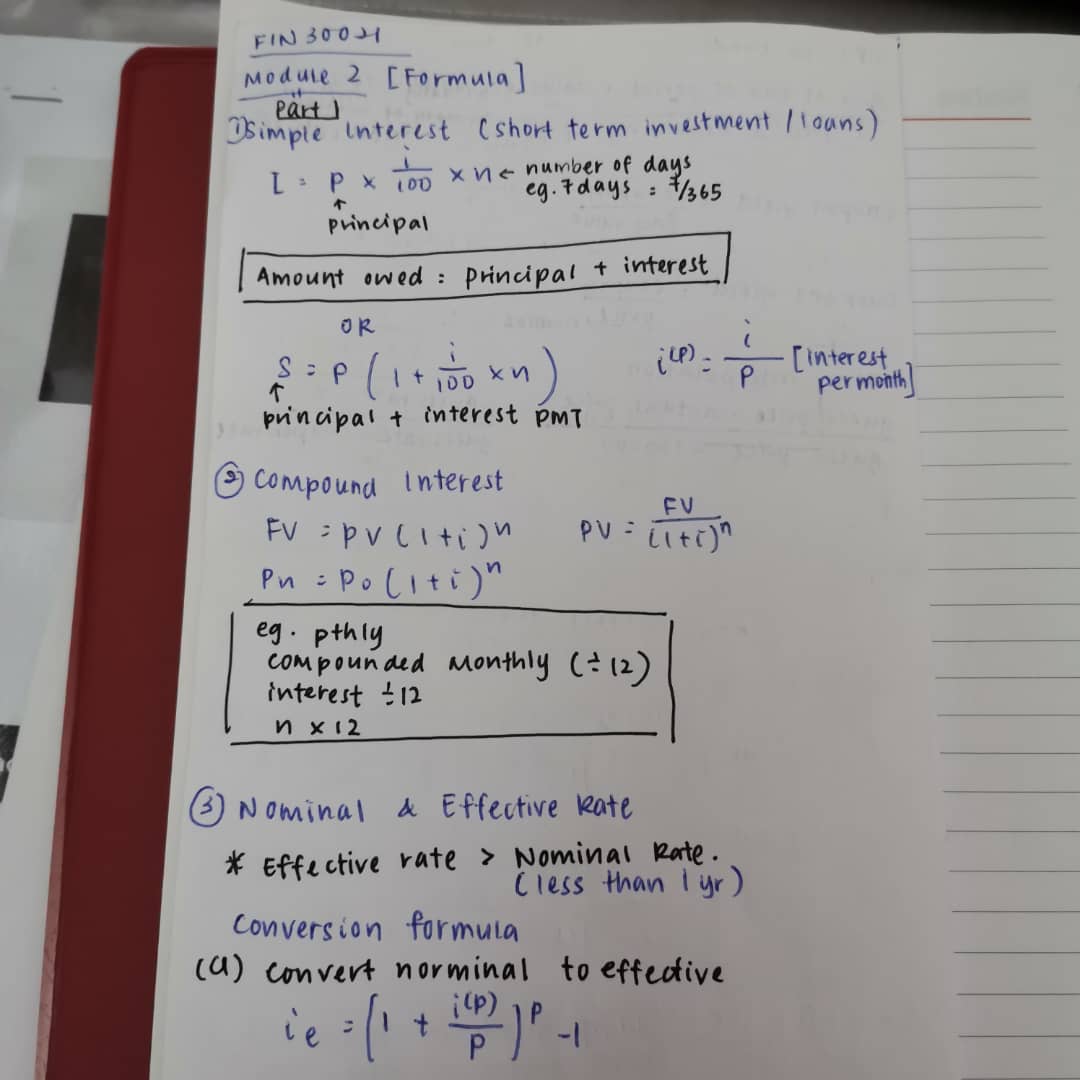 FIN 30021
Module 2 [Formula]
Part 1
① Simple Interest (short term investment / loans)
I = P × i/100 × n ← number of days
eg. 7 days = 7/365
↑
principal
Amount owed = Principal + interest
OR
S = P (1 + i/100 × n)
i(p) = i/P [interest per month]
↑
principal + interest PMT
② Compound Interest
FV = PV (1+i)n
PV = FV/(1+i)n
Pn = Po (1+i)n
eg. pthly
compounded Monthly (÷ 12)
interest ÷ 12
n × 12
③ Nominal & Effective Rate
* Effective rate > Nominal Rate.
(less than 1 yr)
Conversion formula
(a) convert norminal to effective
ie = (1 + i(p)/P)P -1